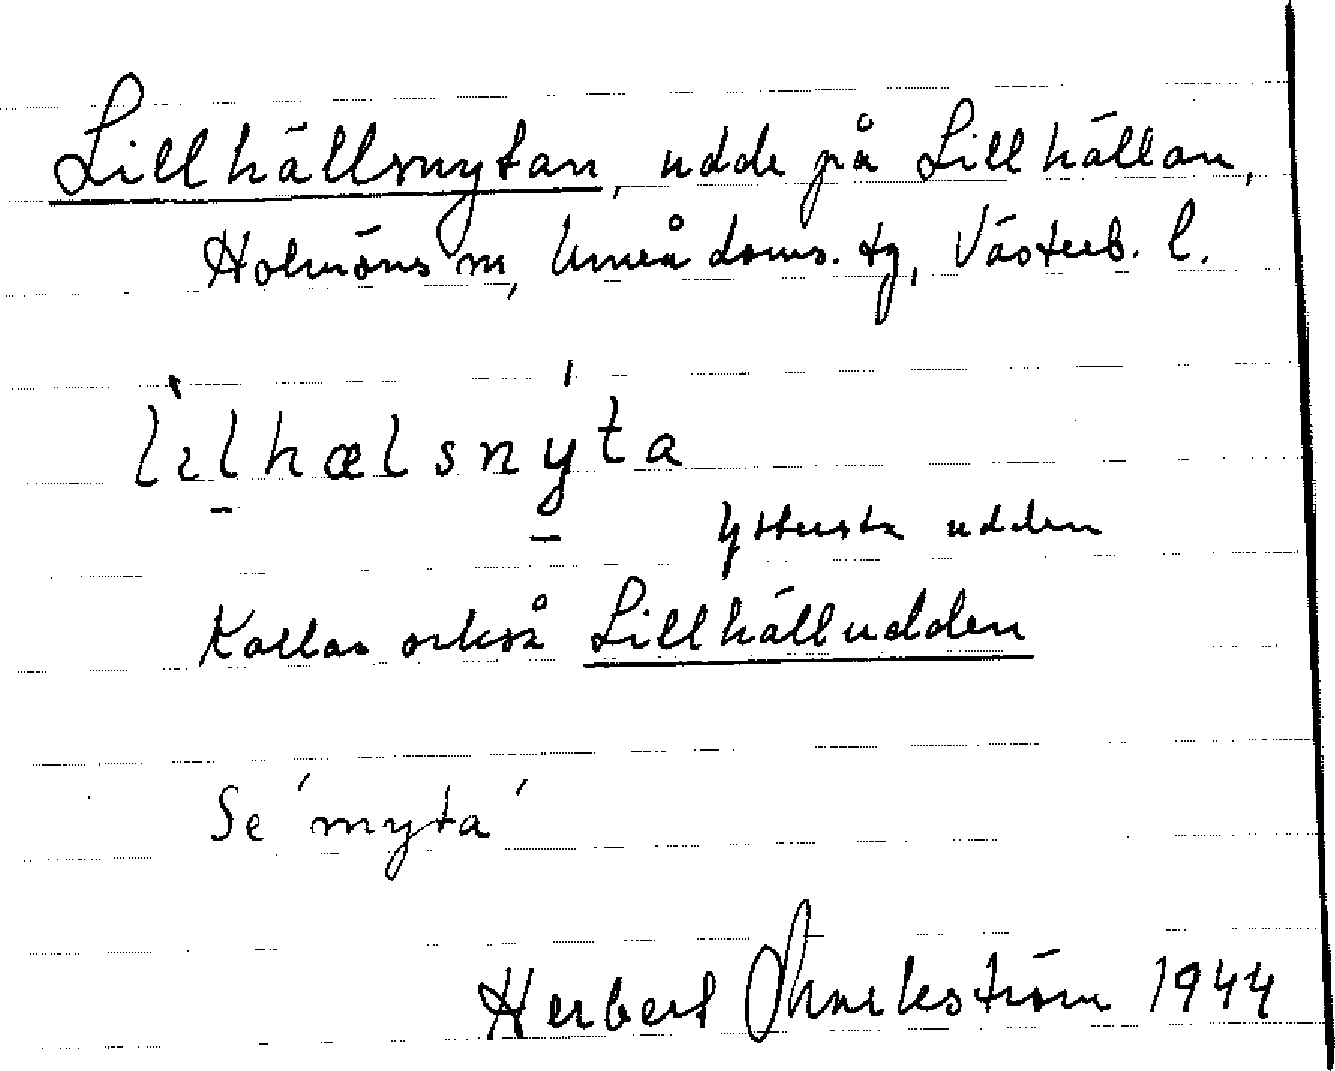 Lillhällsnytan, udde på Lillhällan,
Holmöns sn, Umeå doms. tg, Västerb. l.
lìlhælsnýta
Yttersta udden
Kallas också Lillhälludden
Se 'nyta'
Herbert Markström 1944